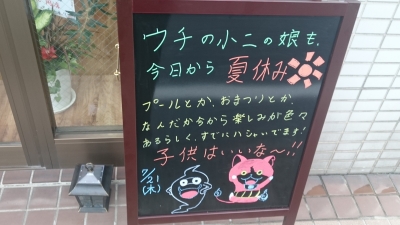 ウチの小二の娘も、
今日から 夏休み
プールとか、おまつりとか、
なんだか今から楽しみが色々
あるらしく、すでにハシャいでます!
子供はいいな〜!!
7/21
(木)